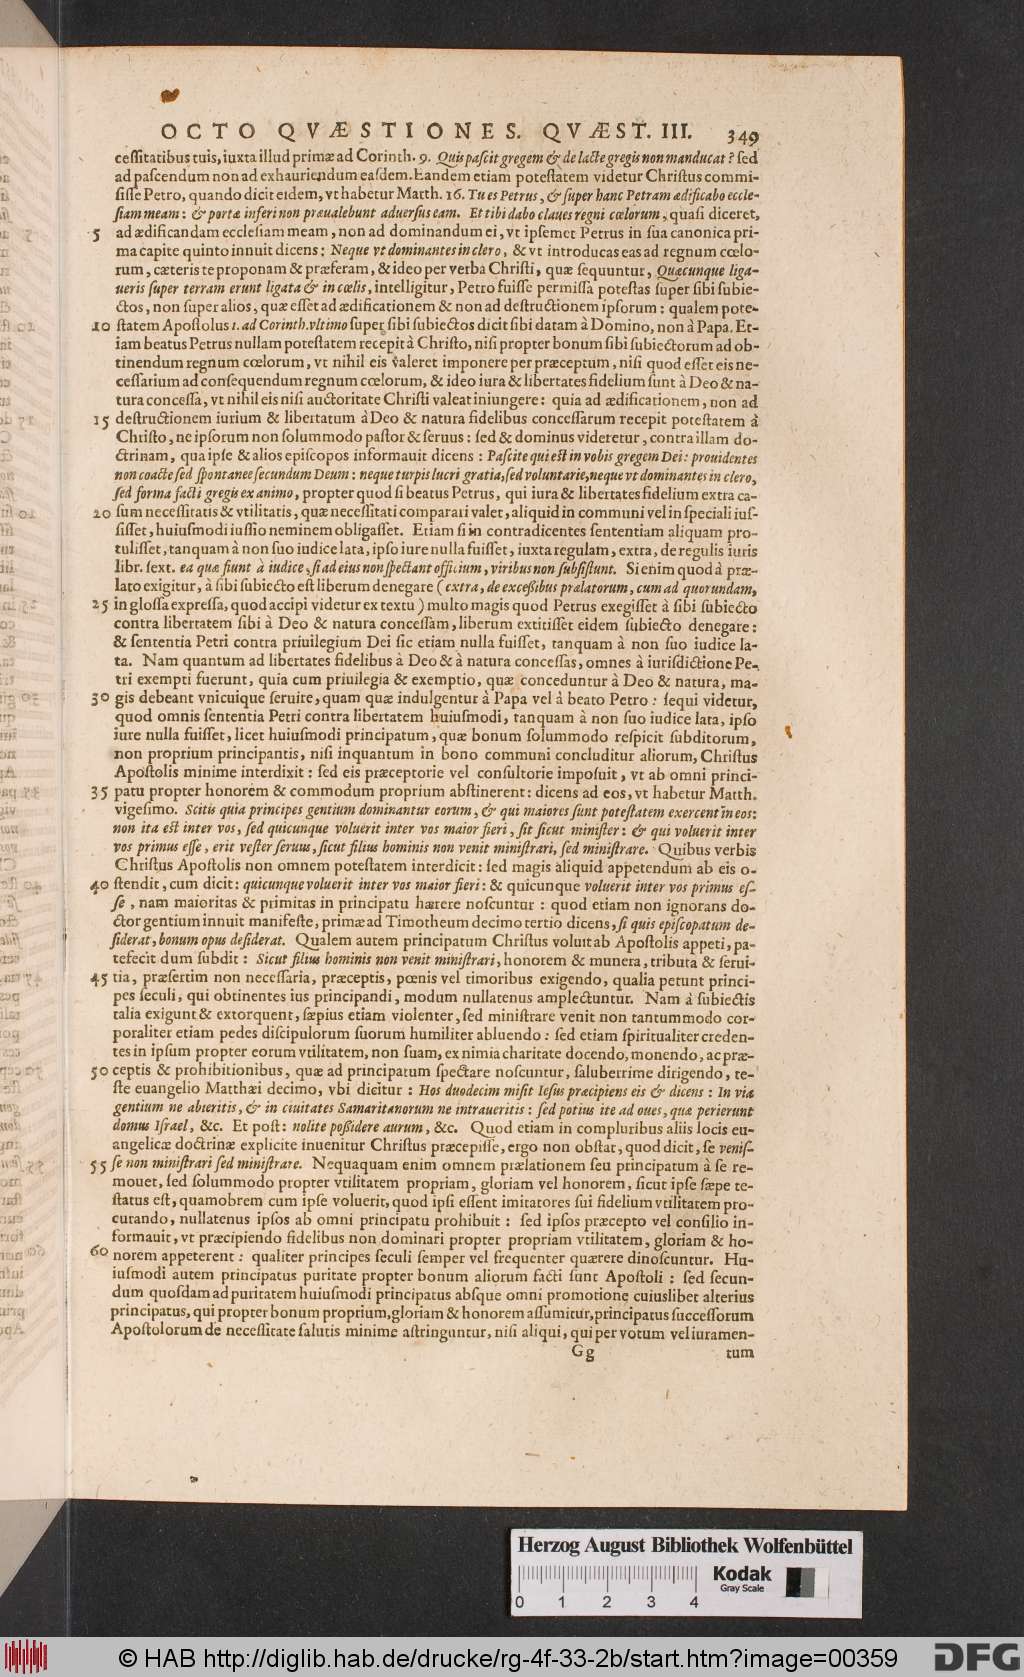 OCTO QVÆSTIONES. QVÆST. III. 349
ceſſitatibus tuis, iuxta illud primæ ad Corinth. 9. Quis paſcit gregem & de lacte gregis non manducat? ſed
ad paſcendum non ad exhauriendum eaſdem. Eandem etiam poteſtatem videtur Chriſtus commi-
ſiſſe Petro, quando dicit eidem, vt habetur Matth. 16. Tu es Petrus, & ſuper hanc Petram ædificabo eccle-
ſiam meam: & portæ inferi non præualebunt aduerſus eam. Et tibi dabo claues regni cœlorum, quaſi diceret,
5 ad ædificandam eccleſiam meam, non ad dominandum ei, vt ipſemet Petrus in ſua canonica pri-
ma capite quinto innuit dicens: Neque vt dominantes in clero, & vt introducas eas ad regnum cœlo-
rum, cæteris te proponam & præferam, & ideo per verba Chriſti, quæ ſequuntur, Quæcunque liga-
ueris ſuper terram erunt ligata & in cœlis, intelligitur, Petro fuiſſe permiſſa poteſtas ſuper ſibi ſubie-
ctos, non ſuper alios, quæ eſſet ad ædificationem & non ad deſtructionem ipſorum: qualem pote-
10 ſtatem Apoſtolus 1. ad Corinth. vltimo ſuper ſibi ſubiectos dicit ſibi datam à Domino, non à Papa. Et-
iam beatus Petrus nullam poteſtatem recepit à Chriſto, niſi propter bonum ſibi ſubiectorum ad ob-
tinendum regnum cœlorum, vt nihil eis valeret imponere per præceptum, niſi quod eſſet eis ne-
ceſſarium ad conſequendum regnum cœlorum, & ideo iura & libertates fidelium ſunt à Deo & na-
tura conceſſa, vt nihil eis niſi auctoritate Chriſti valeat iniungere: quia ad ædificationem, non ad
15 deſtructionem iurium & libertatum à Deo & natura fidelibus conceſſarum recepit poteſtatem à
Chriſto, ne ipſorum non ſolummodo paſtor & ſeruus: ſed & dominus videretur, contra illam do-
ctrinam, qua ipſe & alios epiſcopos informauit dicens: Paſcite qui eſt in vobis gregem Dei: prouidentes
non coacte ſed ſpontanee ſecundum Deum: neque turpis lucri gratia, ſed voluntarie, neque vt dominantes in clero,
ſed forma facti gregis ex animo, propter quod ſi beatus Petrus, qui iura & libertates fidelium extra ca-
20 ſum neceſſitatis & vtilitatis, quæ neceſſitati comparari valet, aliquid in communi vel in ſpeciali iuſ-
ſiſſet, huiuſmodi iuſſio neminem obligaſſet. Etiam ſi in contradicentes ſententiam aliquam pro-
tuliſſet, tanquam à non ſuo iudice lata, ipſo iure nulla fuiſſet, iuxta regulam, extra, de regulis iuris
libr. ſext. ea quæ fiunt à iudice, ſi ad eius non ſpectant officium, viribus non ſubſiſtunt. Si enim quod à præ-
lato exigitur, à ſibi ſubiecto eſt liberum denegare (extra, de exceſſibus prælatorum, cum ad quorundam,
25 in gloſſa expreſſa, quod accipi videtur ex textu) multo magis quod Petrus exegiſſet à ſibi ſubiecto
contra libertatem ſibi à Deo & natura conceſſam, liberum extitiſſet eidem ſubiecto denegare:
& ſententia Petri contra priuilegium Dei ſic etiam nulla fuiſſet, tanquam à non ſuo iudice la-
ta. Nam quantum ad libertates fidelibus à Deo & à natura conceſſas, omnes à iurisdictione Pe-
tri exempti fuerunt, quia cum priuilegia & exemptio, quæ conceduntur à Deo & natura, ma-
30 gis debeant vnicuique ſeruire, quam quæ indulgentur à Papa vel à beato Petro: ſequi videtur,
quod omnis ſententia Petri contra libertatem huiuſmodi, tanquam à non ſuo iudice lata, ipſo
iure nulla fuiſſet, licet huiuſmodi principatum, quæ bonum ſolummodo reſpicit ſubditorum,
non proprium principantis, niſi inquantum in bono communi concluditur aliorum, Chriſtus
Apoſtolis minime interdixit: ſed eis præceptorie vel conſultorie impoſuit, vt ab omni princi-
35 patu propter honorem & commodum proprium abſtinerent: dicens ad eos, vt habetur Matth.
vigeſimo. Scitis quia principes gentium dominantur eorum, & qui maiores ſunt poteſtatem exercent in eos:
non ita eſt inter vos, ſed quicunque voluerit inter vos maior fieri, ſit ſicut miniſter: & qui voluerit inter
vos primus eſſe, erit veſter ſeruus, ſicut filius hominis non venit miniſtrari, ſed miniſtrare. Quibus verbis
Chriſtus Apoſtolis non omnem poteſtatem interdicit: ſed magis aliquid appetendum ab eis o-
40 ſtendit, cum dicit: quicunque voluerit inter vos maior fieri: & quicunque voluerit inter vos primus eſ-
ſe, nam maioritas & primitas in principatu hærere noſcuntur: quod etiam non ignorans do-
ctor gentium innuit manifeſte, primæ ad Timotheum decimo tertio dicens, ſi quis epiſcopatum de-
ſiderat, bonum opus deſiderat. Qualem autem principatum Chriſtus voluit ab Apoſtolis appeti, pa-
tefecit dum ſubdit: Sicut filius hominis non venit miniſtrari, honorem & munera, tributa & ſerui-
45 tia, præſertim non neceſſaria, præceptis, pœnis vel timoribus exigendo, qualia petunt princi-
pes ſeculi, qui obtinentes ius principandi, modum nullatenus amplectuntur. Nam à ſubiectis
talia exigunt & extorquent, ſæpius etiam violenter, ſed miniſtrare venit non tantummodo cor-
poraliter etiam pedes diſcipulorum ſuorum humiliter abluendo: ſed etiam ſpiritualiter creden-
tes in ipſum propter eorum vtilitatem, non ſuam, ex nimia charitate docendo, monendo, ac præ-
50 ceptis & prohibitionibus, quæ ad principatum ſpectare noſcuntur, ſaluberrime dirigendo, te-
ſte euangelio Matthæi decimo, vbi dicitur: Hos duodecim miſit Ieſus præcipiens eis & dicens: In viā
gentium ne abieritis, & in ciuitates Samaritanorum ne intraueritis: ſed potius ite ad oues, quæ perierunt
domus Iſrael, &c. Et poſt: nolite poſſidere aurum, &c. Quod etiam in compluribus aliis locis eu-
angelicæ doctrinæ explicite inuenitur Chriſtus præcepiſſe, ergo non obſtat, quod dicit, ſe veniſ-
55 ſe non miniſtrari ſed miniſtrare. Nequaquam enim omnem prælationem ſeu principatum à ſe re-
mouet, ſed ſolummodo propter vtilitatem propriam, gloriam vel honorem, ſicut ipſe ſæpe te-
ſtatus eſt, quamobrem cum ipſe voluerit, quod ipſi eſſent imitatores ſui fidelium vtilitatem pro-
curando, nullatenus ipſos ab omni principatu prohibuit: ſed ipſos præcepto vel conſilio in-
formauit, vt præcipiendo fidelibus non dominari propter propriam vtilitatem, gloriam & ho-
60 norem appeterent: qualiter principes ſeculi ſemper vel frequenter quærere dinoſcuntur. Hu-
iuſmodi autem principatus puritate propter bonum aliorum facti ſunt Apoſtoli: ſed ſecun-
dum quoſdam ad puritatem huiuſmodi principatus abſque omni promotione cuiuslibet alterius
principatus, qui propter bonum proprium, gloriam & honorem aſſumitur, principatus ſucceſſorum
Apoſtolorum de neceſſitate ſalutis minime aſtringuntur, niſi aliqui, qui per votum vel iuramen-
Gg tum
Herzog August Bibliothek Wolfenbüttel
Kodak
Gray Scale
0 1 2 3 4
© HAB http://diglib.hab.de/drucke/rg-4f-33-2b/start.htm?image=00359
DFG